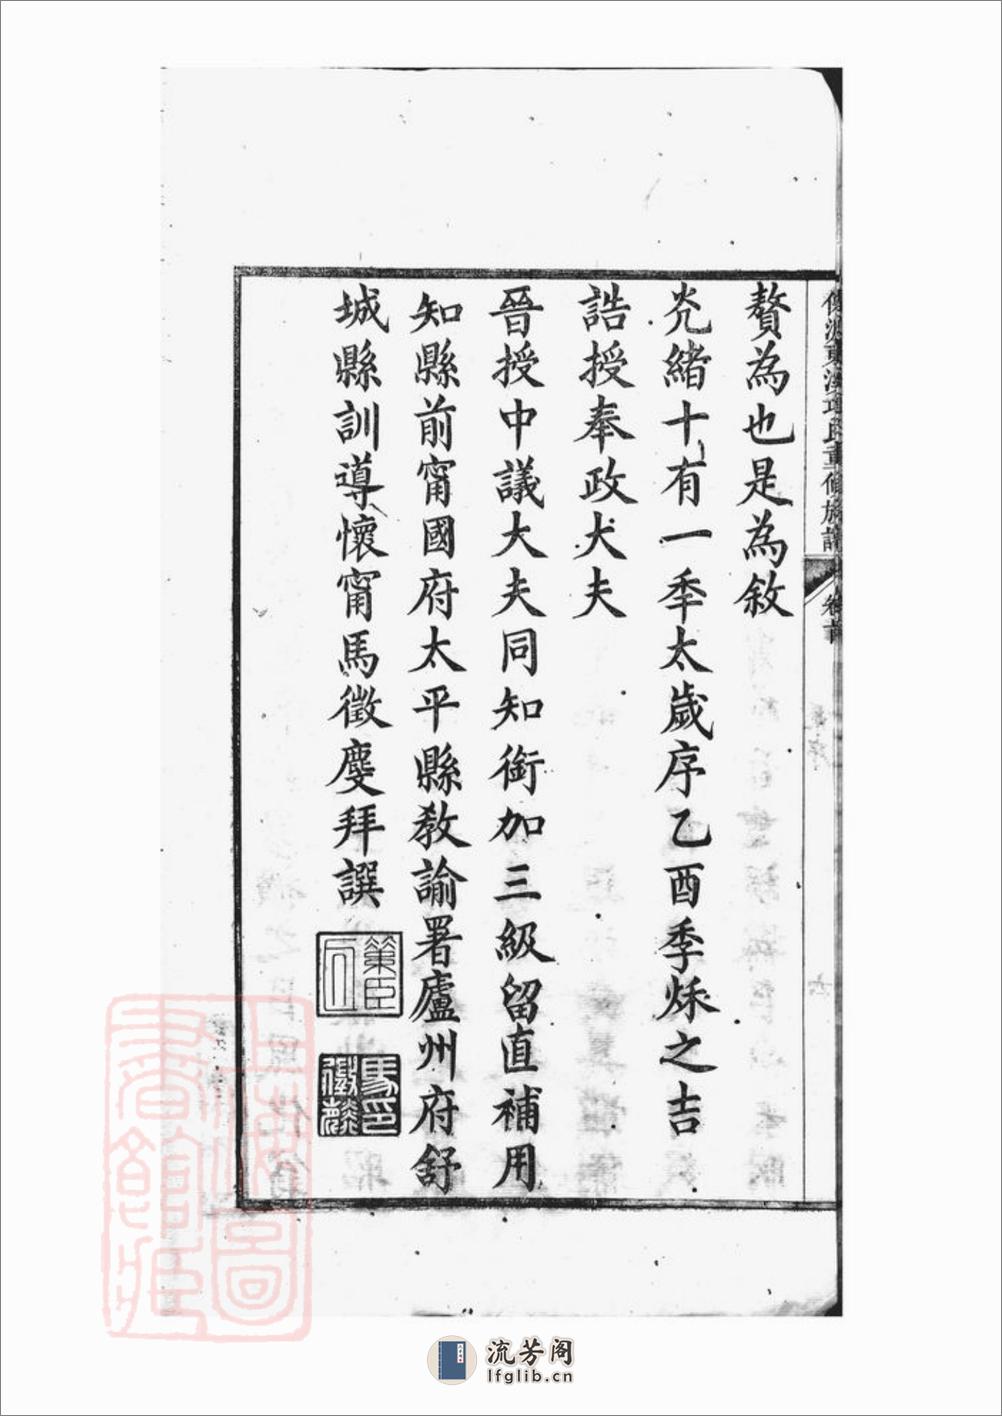 贅為也是為敘
光緒十有一季太歲序乙酉季秌之吉
誥授奉政大夫
晉授中議大夫同知銜加三級留直補用
知縣前甯國府太平縣教諭署廬州府舒
城縣訓導懷甯馬徵慶拜譔
氏重修族譜
卷首
六
流芳阁
lfglib.cn